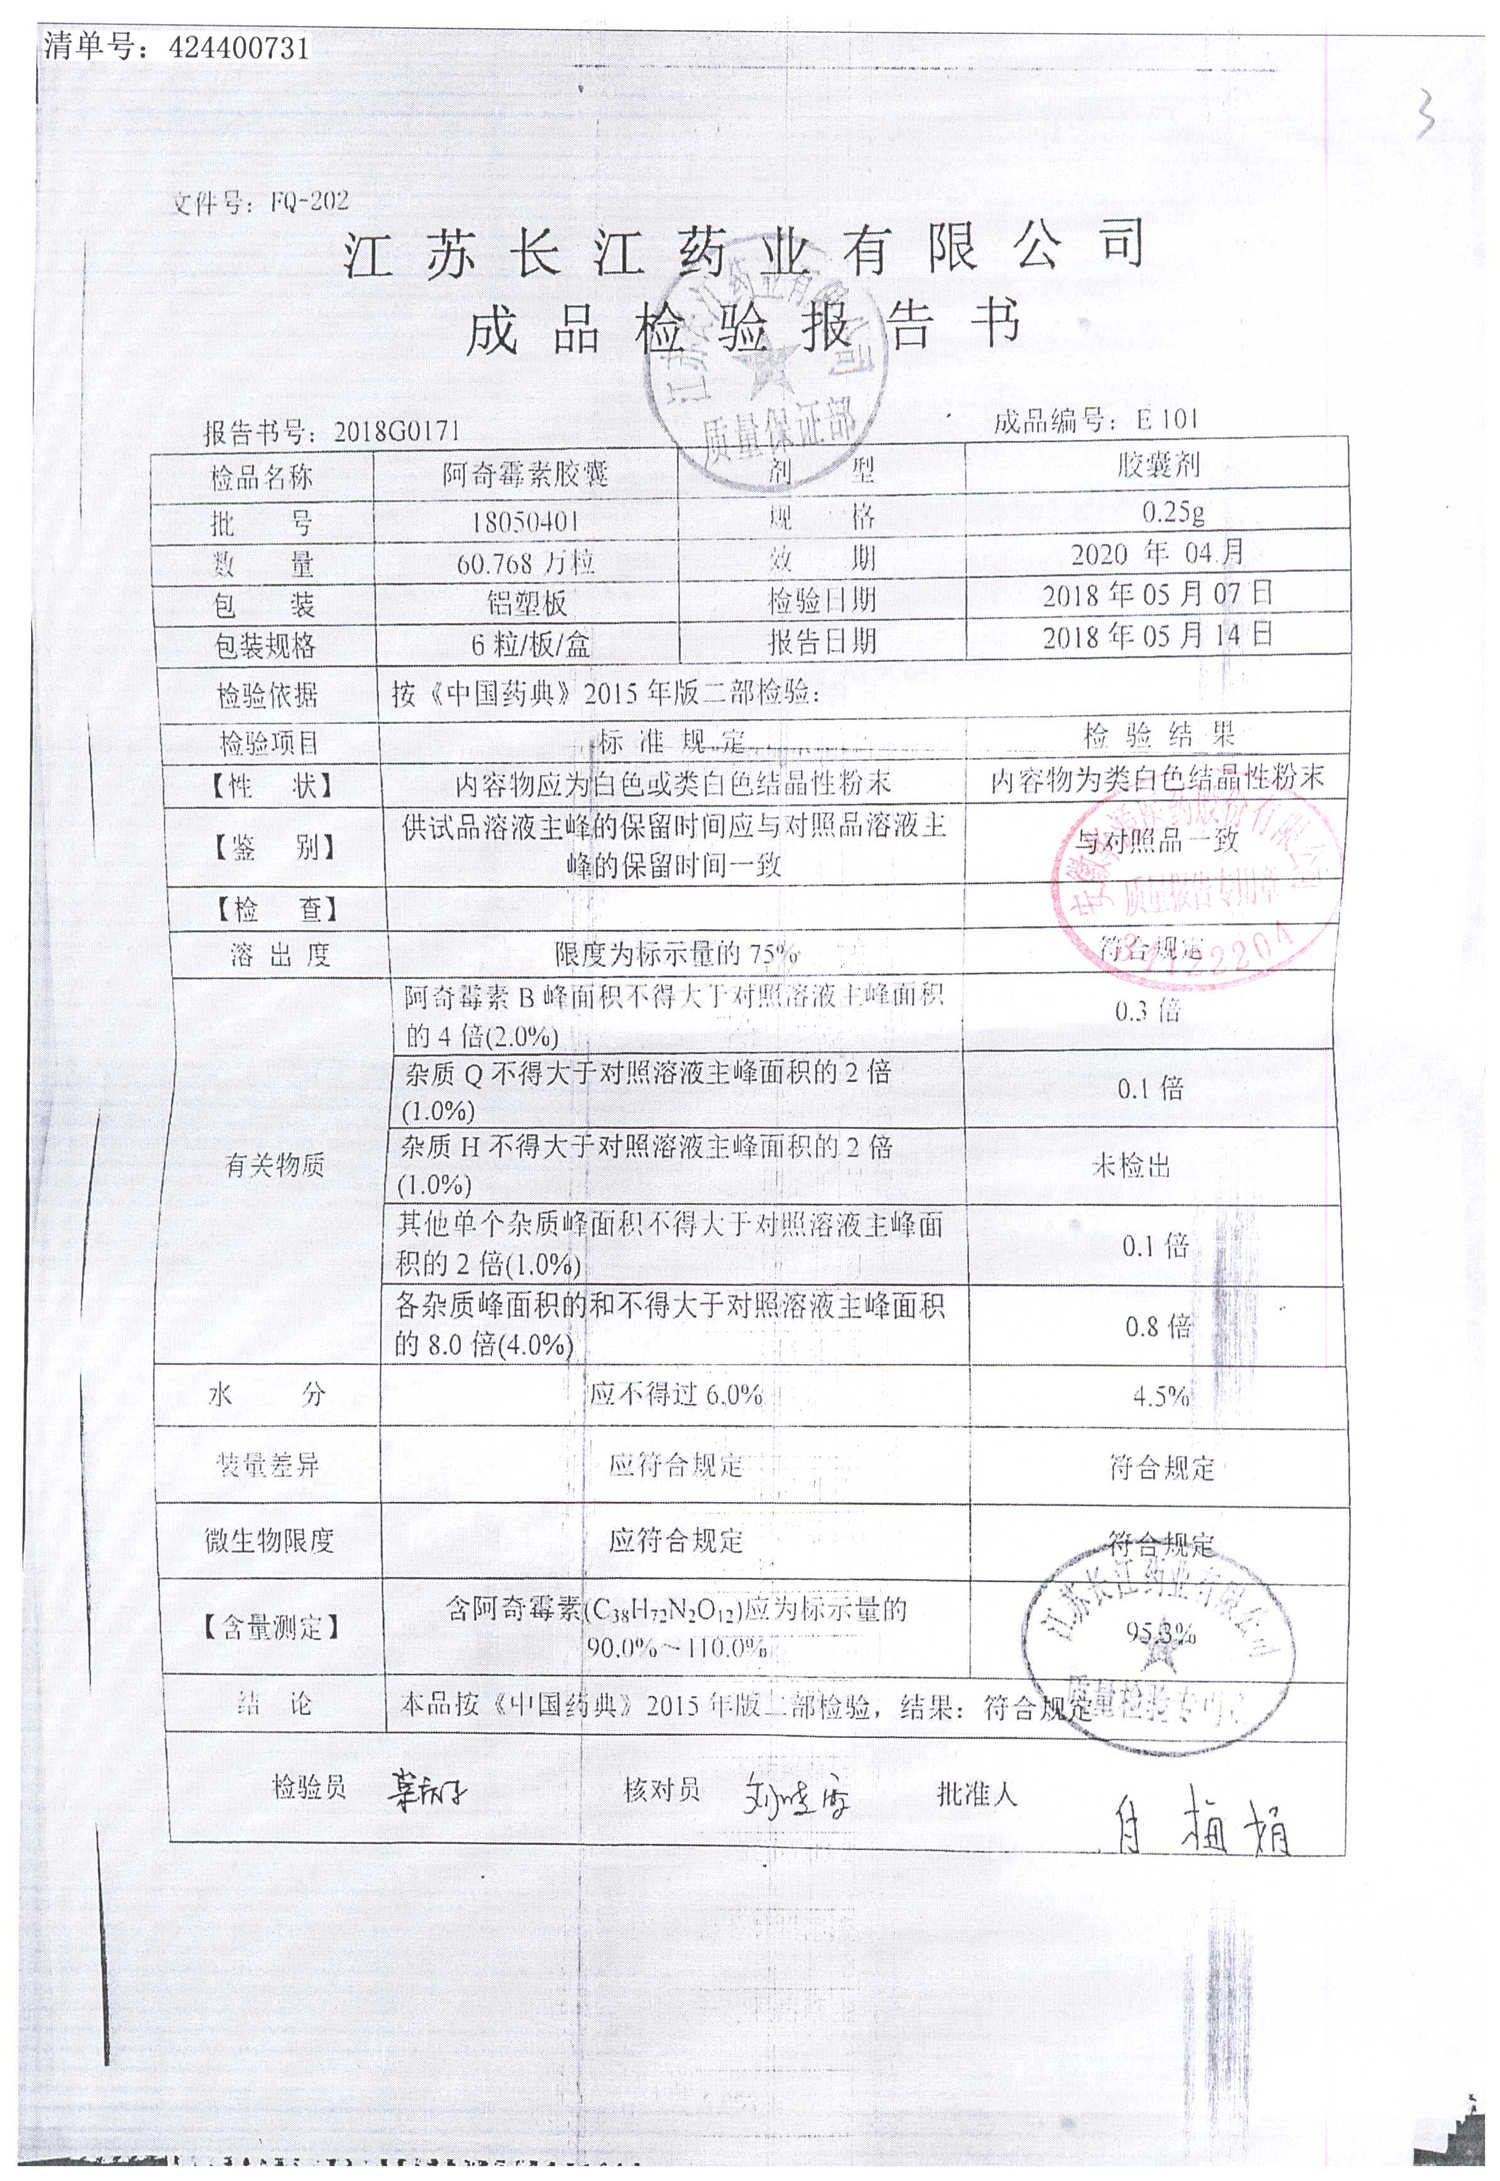 清单号：424400731
3
文件号：FQ-202
江苏长江药业有限公司
成品检验报告书
江苏长江药业有限公司
质量保证部
报告书号：2018G0171 成品编号：E 101
检品名称 阿奇霉素胶囊 剂 型 胶囊剂
批 号 18050401 规 格 0.25g
数 量 60.768 万粒 效 期 2020 年 04 月
包 装 铝塑板 检验日期 2018 年 05 月 07 日
包装规格 6 粒/板/盒 报告日期 2018 年 05 月 14 日
检验依据 按《中国药典》2015 年版二部检验：
检验项目 标 准 规 定 检 验 结 果
【性 状】 内容物应为白色或类白色结晶性粉末 内容物为类白色结晶性粉末
【鉴 别】 供试品溶液主峰的保留时间应与对照品溶液主
峰的保留时间一致 与对照品一致
【检 查】
质量报告专用章
溶 出 度 限度为标示量的 75% 符合规定
有关物质
阿奇霉素 B 峰面积不得大于对照溶液主峰面积
的 4 倍(2.0%) 0.3 倍
杂质 Q 不得大于对照溶液主峰面积的 2 倍
(1.0%) 0.1 倍
杂质 H 不得大于对照溶液主峰面积的 2 倍
(1.0%) 未检出
其他单个杂质峰面积不得大于对照溶液主峰面
积的 2 倍(1.0%) 0.1 倍
各杂质峰面积的和不得大于对照溶液主峰面积
的 8.0 倍(4.0%) 0.8 倍
水 分 应不得过 6.0% 4.5%
装量差异 应符合规定 符合规定
微生物限度 应符合规定 符合规定
【含量测定】 含阿奇霉素(C₃₈H₇₂N₂O₁₂)应为标示量的
90.0%～110.0% 95.3%
江苏长江药业有限公司
结 论 本品按《中国药典》2015 年版二部检验，结果：符合规定
检验员 核对员 批准人